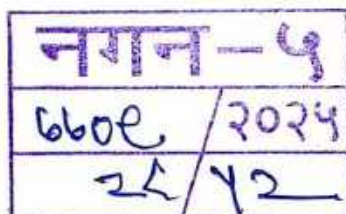 नगन-५
७७०९/२०२५
२८/५२